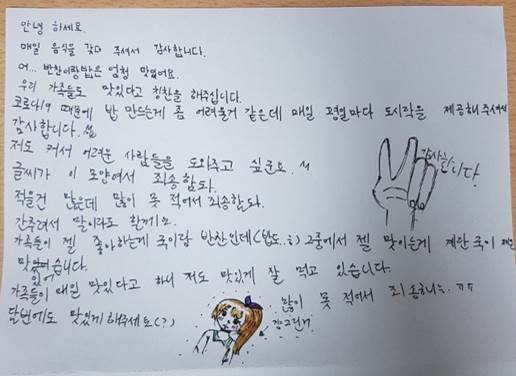 안녕 하세요.
매일 음식을 갖다 주셔서 감사합니다.
어... 반찬이랑밥은 엄청 맛있어요.
우리 가족들도 맛있다고 칭찬을 해주십니다.
코로나19 때문에 밥 만드는게 좀 어려울거 같은데 매일 평일마다 도시락을 제공해 주셔서
감사합니다.
저도 커서 어려운 사람들을 도와주고 싶군요.
글씨가 이 모양여서 죄송함돠.
감사합니다.
적을건 많은데 많이 못 적어서 죄송함돠.
간추려서 말이라도 할께요.
가족들이 젤 좋아하는게 국이랑 반찬인데(밥도..;) 그중에서 젤 맛이는게 계란 국이
맛있었습니다.
가족들이 매일 맛있다고 하니 저도 맛있게 잘 먹고 있습니다.
많이 못 적어서 죄송하니는.ㅠㅠ
담번에도 맛있게해주세요(?)